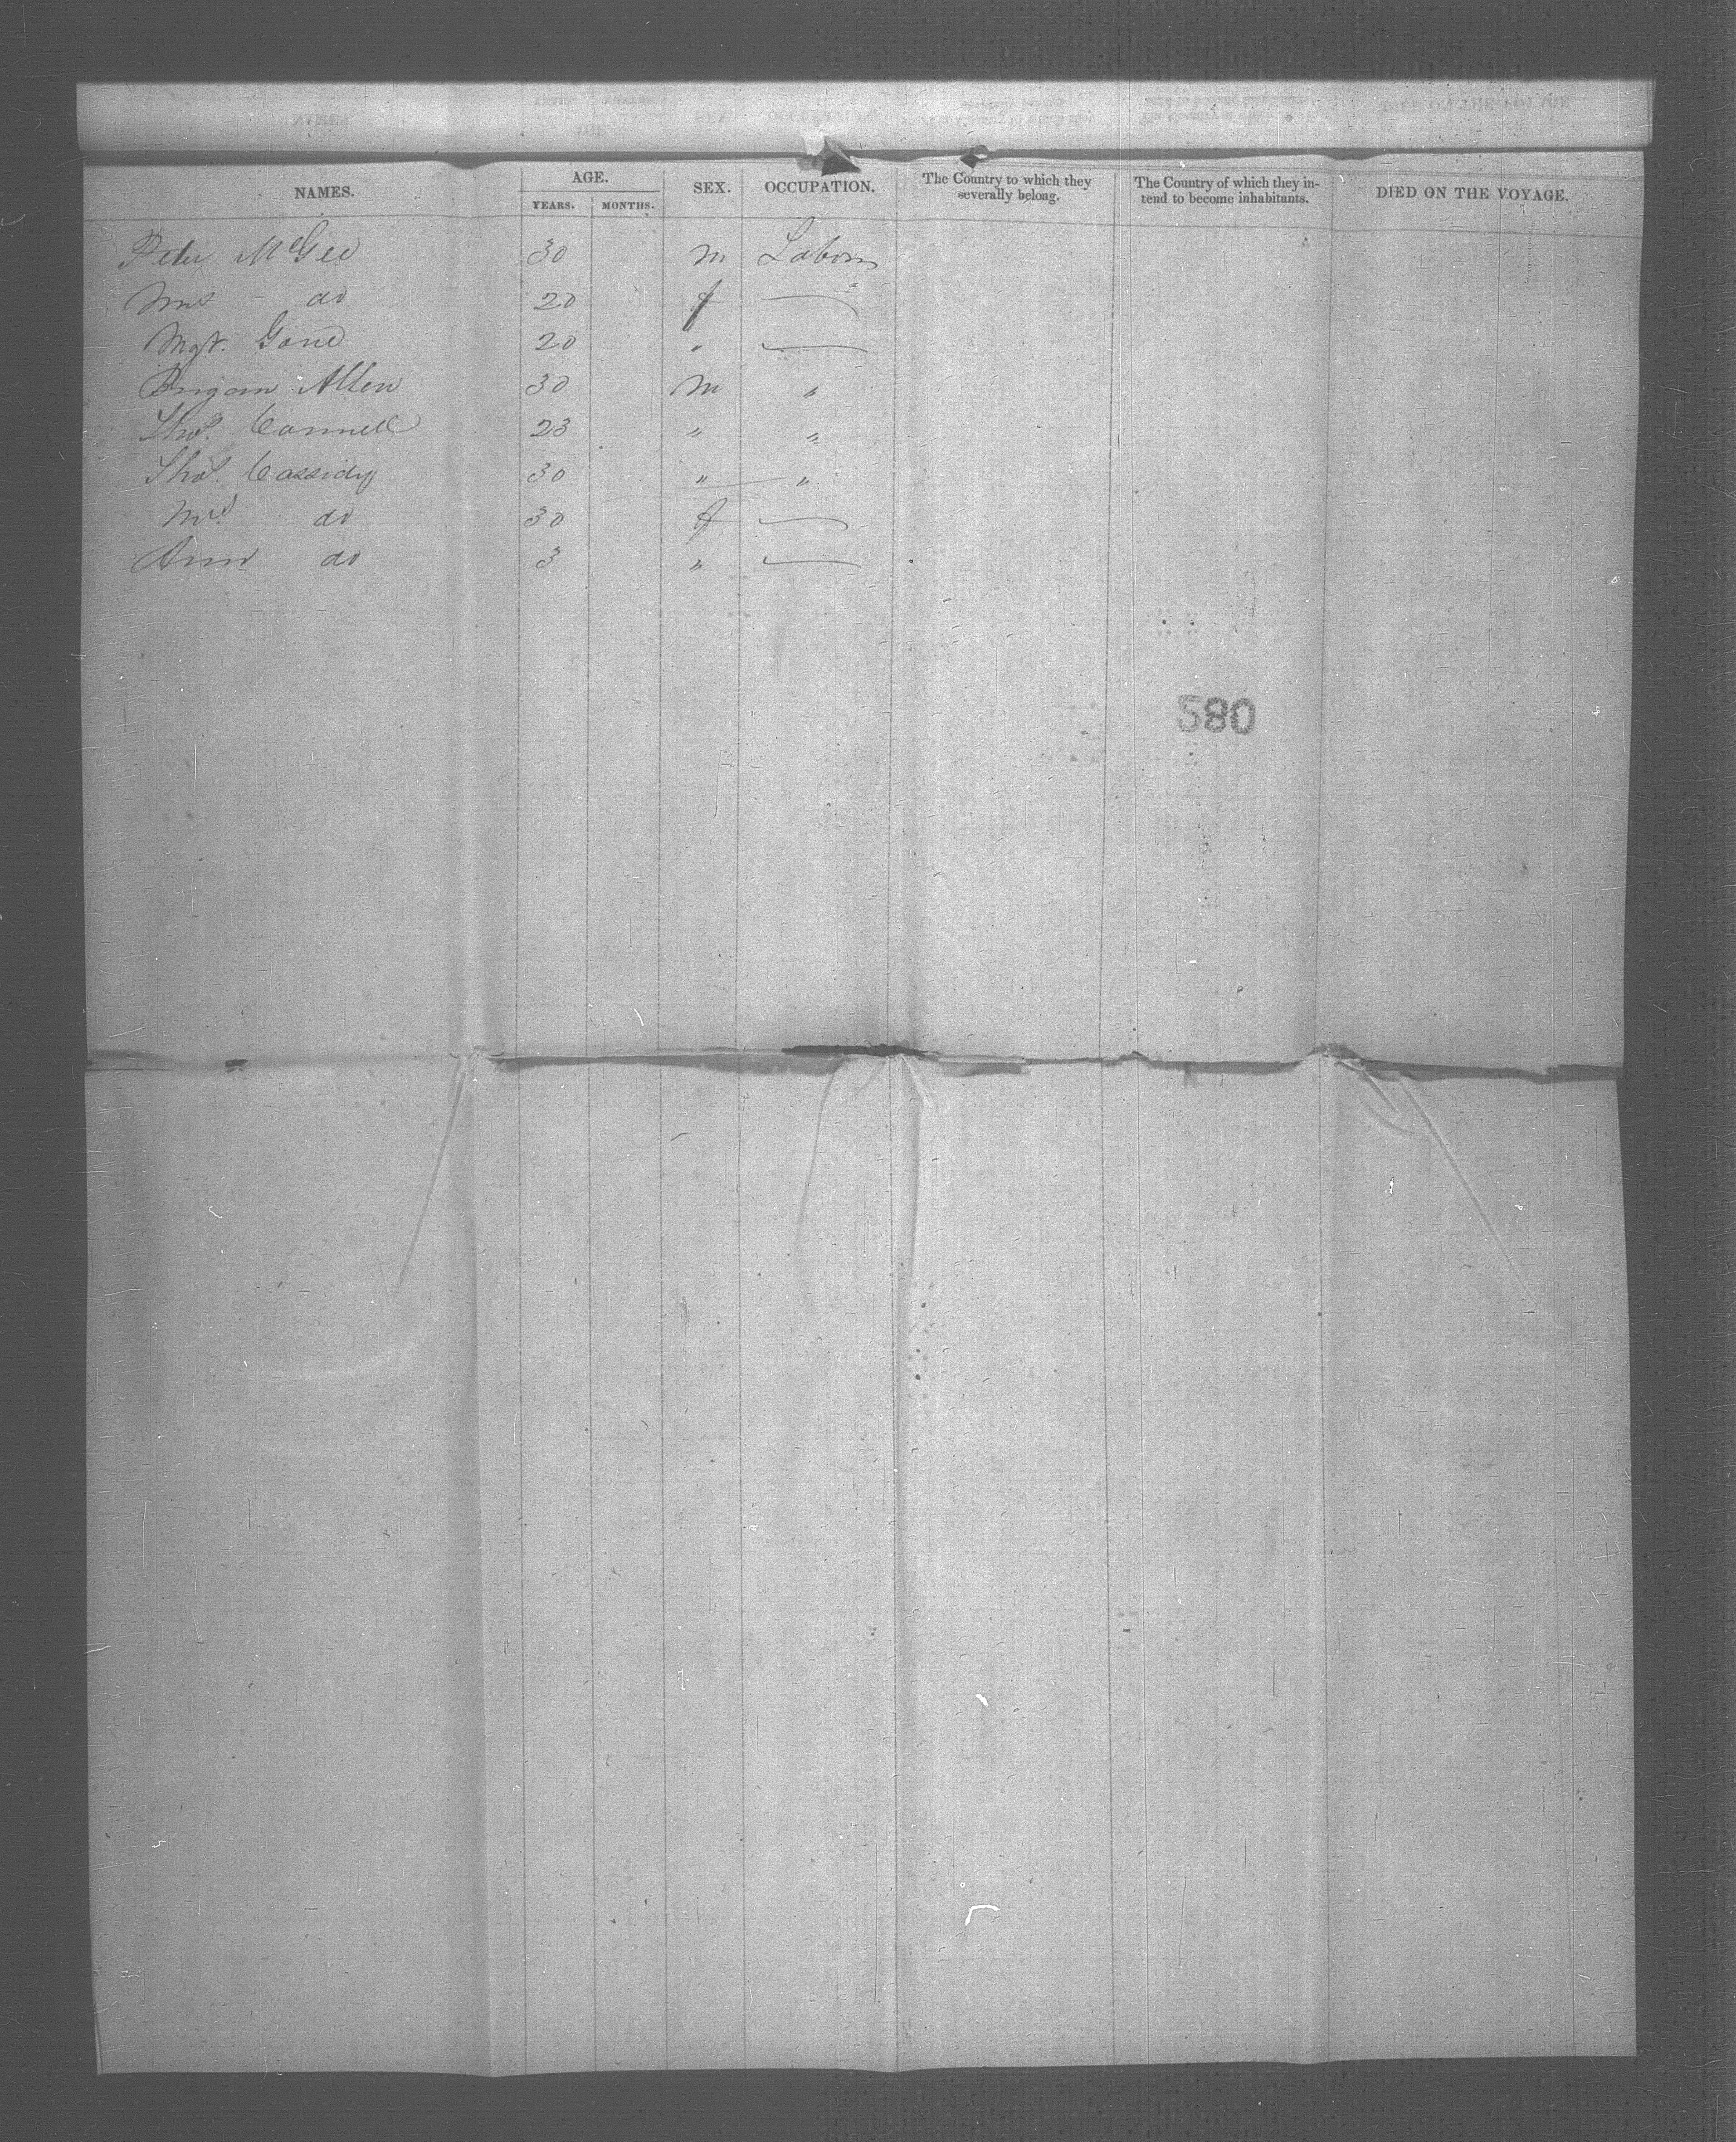 NAMES. AGE. YEARS. MONTHS. SEX. OCCUPATION. The Country to which they severally belong. The Country of which they in-tend to become inhabitants. DIED ON THE VOYAGE.
Peter McGee 30 m Labour
Mrs do 20 f —
Mgt. 20 " —
Allen 30 m "
Thos. Connell 23 " "
Thos. Cassidy 30 " "
Mrs do 30 f —
Ann do 3 " —
580